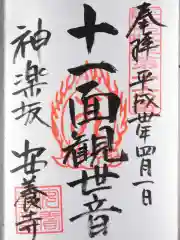 奉拝 平成卅年四月一日
十一面観世音
神楽坂 安養寺